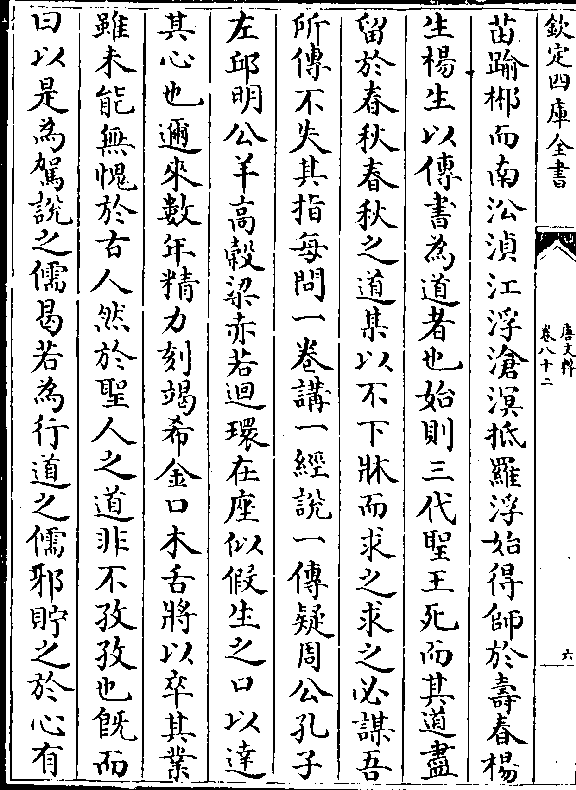 欽定四庫全書
唐文粹
卷八十二
六
苗踰郴而南㳂湞江浮滄溟抵羅浮始得師於壽春楊
生楊生以傳書為道者也始則三代聖王死而其道盡
留於春秋春秋之道某以不下牀而求之求之必謀吾
所傳不失其指每問一卷講一經說一傳疑周公孔子
左邱明公羊高穀梁赤若迴環在座似假生之口以達
其心也邇來數年精力刻竭希金口木舌將以卒其業
雖未能無愧於古人然於聖人之道非不孜孜也既而
曰以是為駕說之儒曷若為行道之儒邪貯之於心有